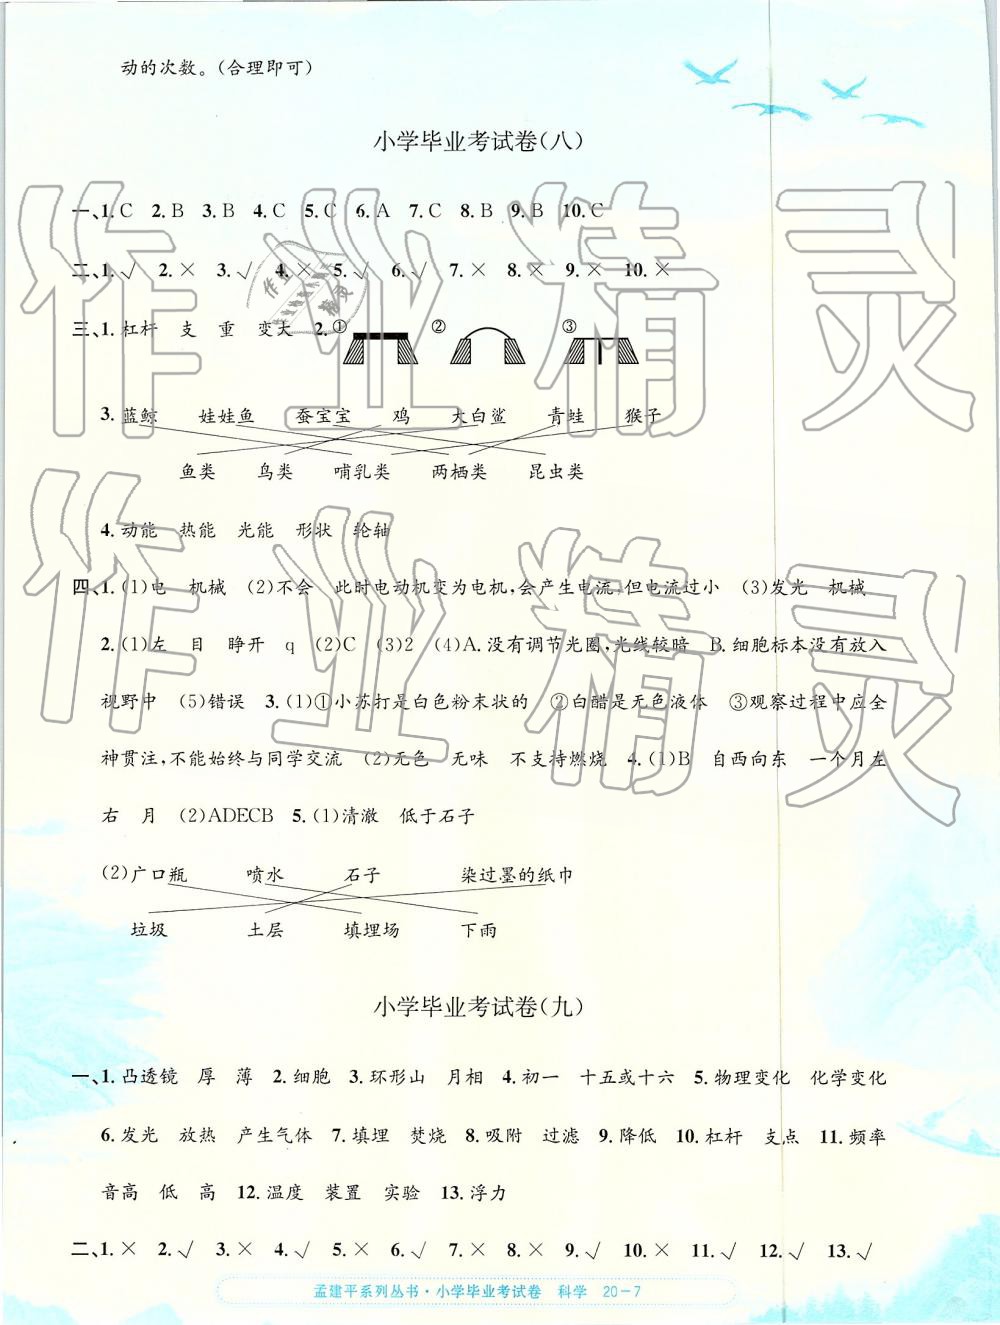 动的次数。(合理即可)
小学毕业考试卷(八)
一、1. C 2. B 3. B 4. C 5. C 6. A 7. C 8. B 9. B 10. C
二、1. √ 2. × 3. √ 4. × 5. √ 6. √ 7. × 8. × 9. × 10. ×
三、1. 杠杆 支 重 变大 2. ① ② ③
3. 蓝鲸 娃娃鱼 蚕宝宝 鸡 大白鲨 青蛙 猴子
鱼类 鸟类 哺乳类 两栖类 昆虫类
4. 动能 热能 光能 形状 轮轴
四、1. (1)电 机械 (2)不会 此时电动机变为电机,会产生电流,但电流过小 (3)发光 机械
2. (1)左 目 睁开 q (2)C (3)2 (4)A. 没有调节光圈,光线较暗 B. 细胞标本没有放入
视野中 (5)错误 3. (1)①小苏打是白色粉末状的 ②白醋是无色液体 ③观察过程中应全
神贯注,不能始终与同学交流 (2)无色 无味 不支持燃烧 4. (1)B 自西向东 一个月左
右 月 (2)ADECB 5. (1)清澈 低于石子
(2)广口瓶 喷水 石子 染过墨的纸巾
垃圾 土层 填埋场 下雨
小学毕业考试卷(九)
一、1. 凸透镜 厚 薄 2. 细胞 3. 环形山 月相 4. 初一 十五或十六 5. 物理变化 化学变化
6. 发光 放热 产生气体 7. 填埋 焚烧 8. 吸附 过滤 9. 降低 10. 杠杆 支点 11. 频率
音高 低 高 12. 温度 装置 实验 13. 浮力
二、1. × 2. √ 3. × 4. √ 5. × 6. √ 7. × 8. × 9. √ 10. × 11. √ 12. √ 13. √
孟建平系列丛书·小学毕业考试卷 科学 20-7
作业精灵
作业精灵
作业精灵